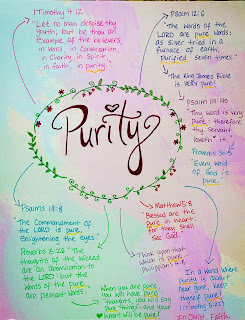 1 Timothy 4:12
"Let no man despise thy
youth; but be thou an
Example of the believers,
in Word, in Conversation,
in Charity, in Spirit,
in faith, in purity.
Psalm 12:6
"The Words of the
LORD are pure words:
as Silver tried in a
furnace of earth,
purified Seven times."
The King James Bible
is Very pure!
Psalm 119:140
"Thy word is very
pure: therefore
thy servant
loveth it."
Proverbs 30:5
"Every Word
of God is
pure."
Purity
Psalms 19:8
The Commandment
of the LORD is pure,
Enlightening the eyes."
Proverbs 15:26 "The
thoughts of the Wicked
are an abomination to
the LORD: but the
Words of the pure
are pleasant Words."
Matthew 5:8
"Blessed are the
pure in heart:
for they Shall
see God.
Think upon that
which is pure.
Philippians 4:8
When you are pure,
you will have pure
thoughts, you will say
pure things and your
heart will be pure!
In a World where
Purity is about
near gone, keep
thyself pure!
(1 Timothy 5:22)
In Christ, Faith